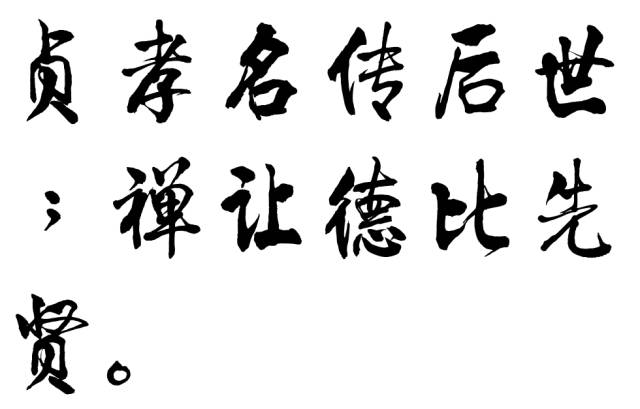 贞孝名传后世
；禅让德比先
贤。